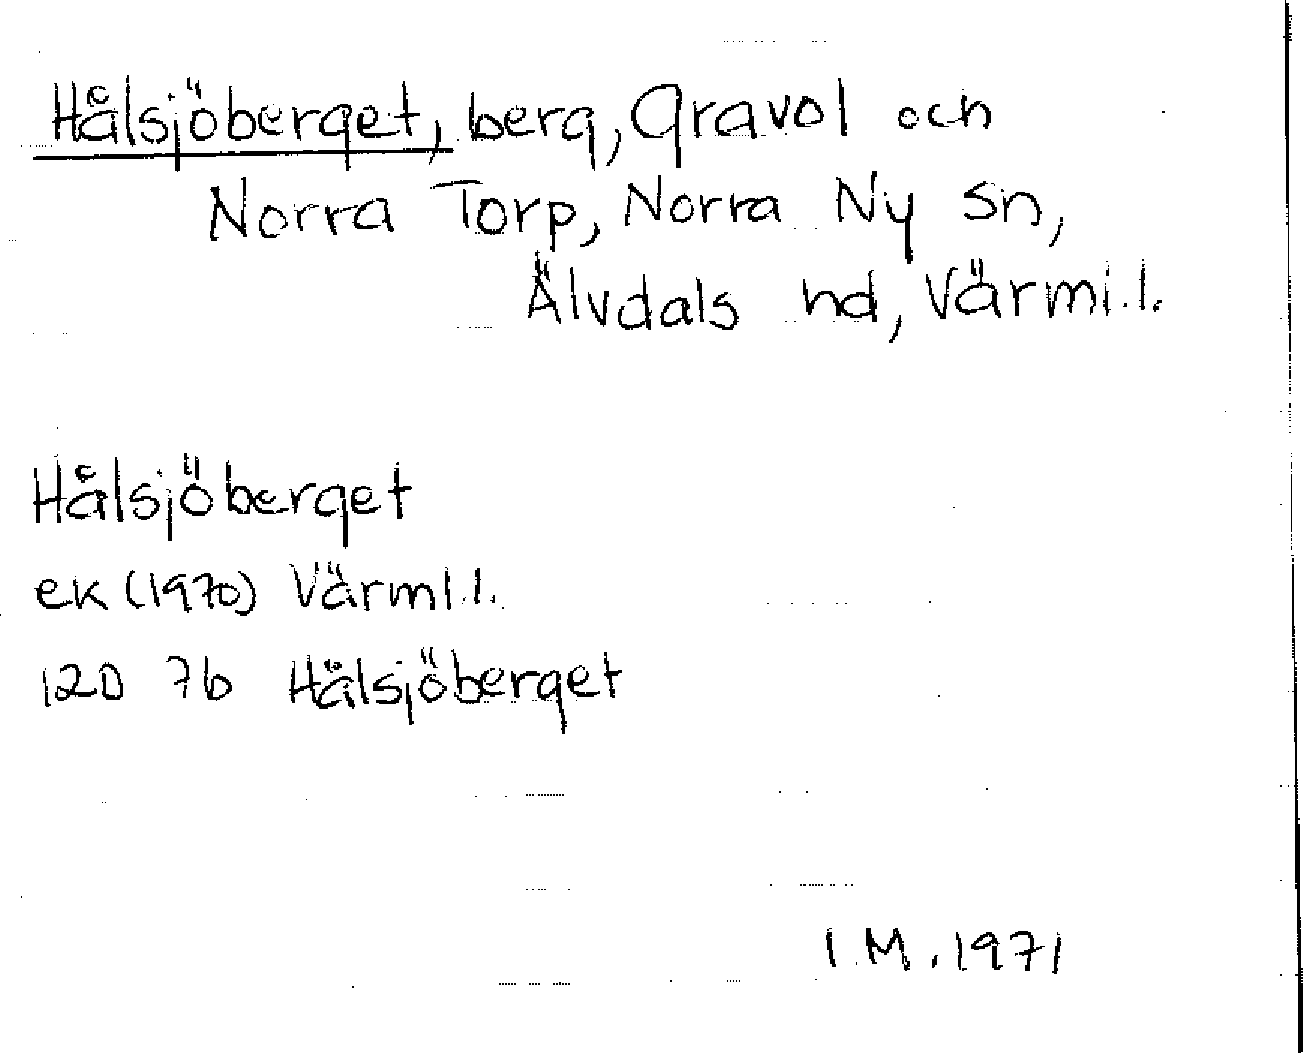 Hålsjöberget, berg, Gravol och
Norra Torp, Norra Ny sn,
Älvdals hd, Värml.l.
Hålsjöberget
ek (1970) Värml.l.
12D 7b Hålsjöberget
I.M. 1971